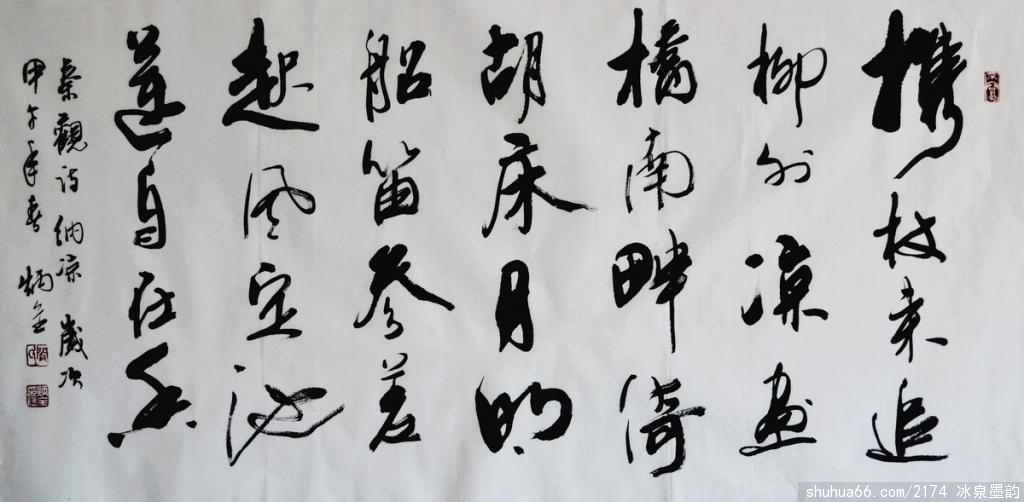 携杖来追
柳外凉画
橋南畔倚
胡床月明
船笛参差
起风定池
莲自在香
秦觀诗 纳凉 歲次
甲午年春 炳金
shuhua66.com/2174 冰泉墨韵